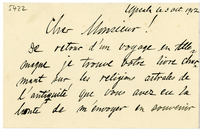 5422
Upsala le 5 oct. 1912
Cher Monsieur !
De retour d'un voyage en Alle-
magne je trouve votre livre char-
mant sur les religions astrales de
l'antiquité que vous avez eu la
bonté de m'envoyer en souvenir